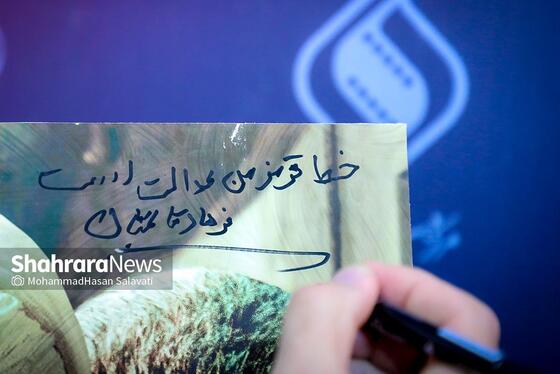 خط قرمز من عدالت است
فرهاد
ShahraraNews
MohammadHasan Salavati